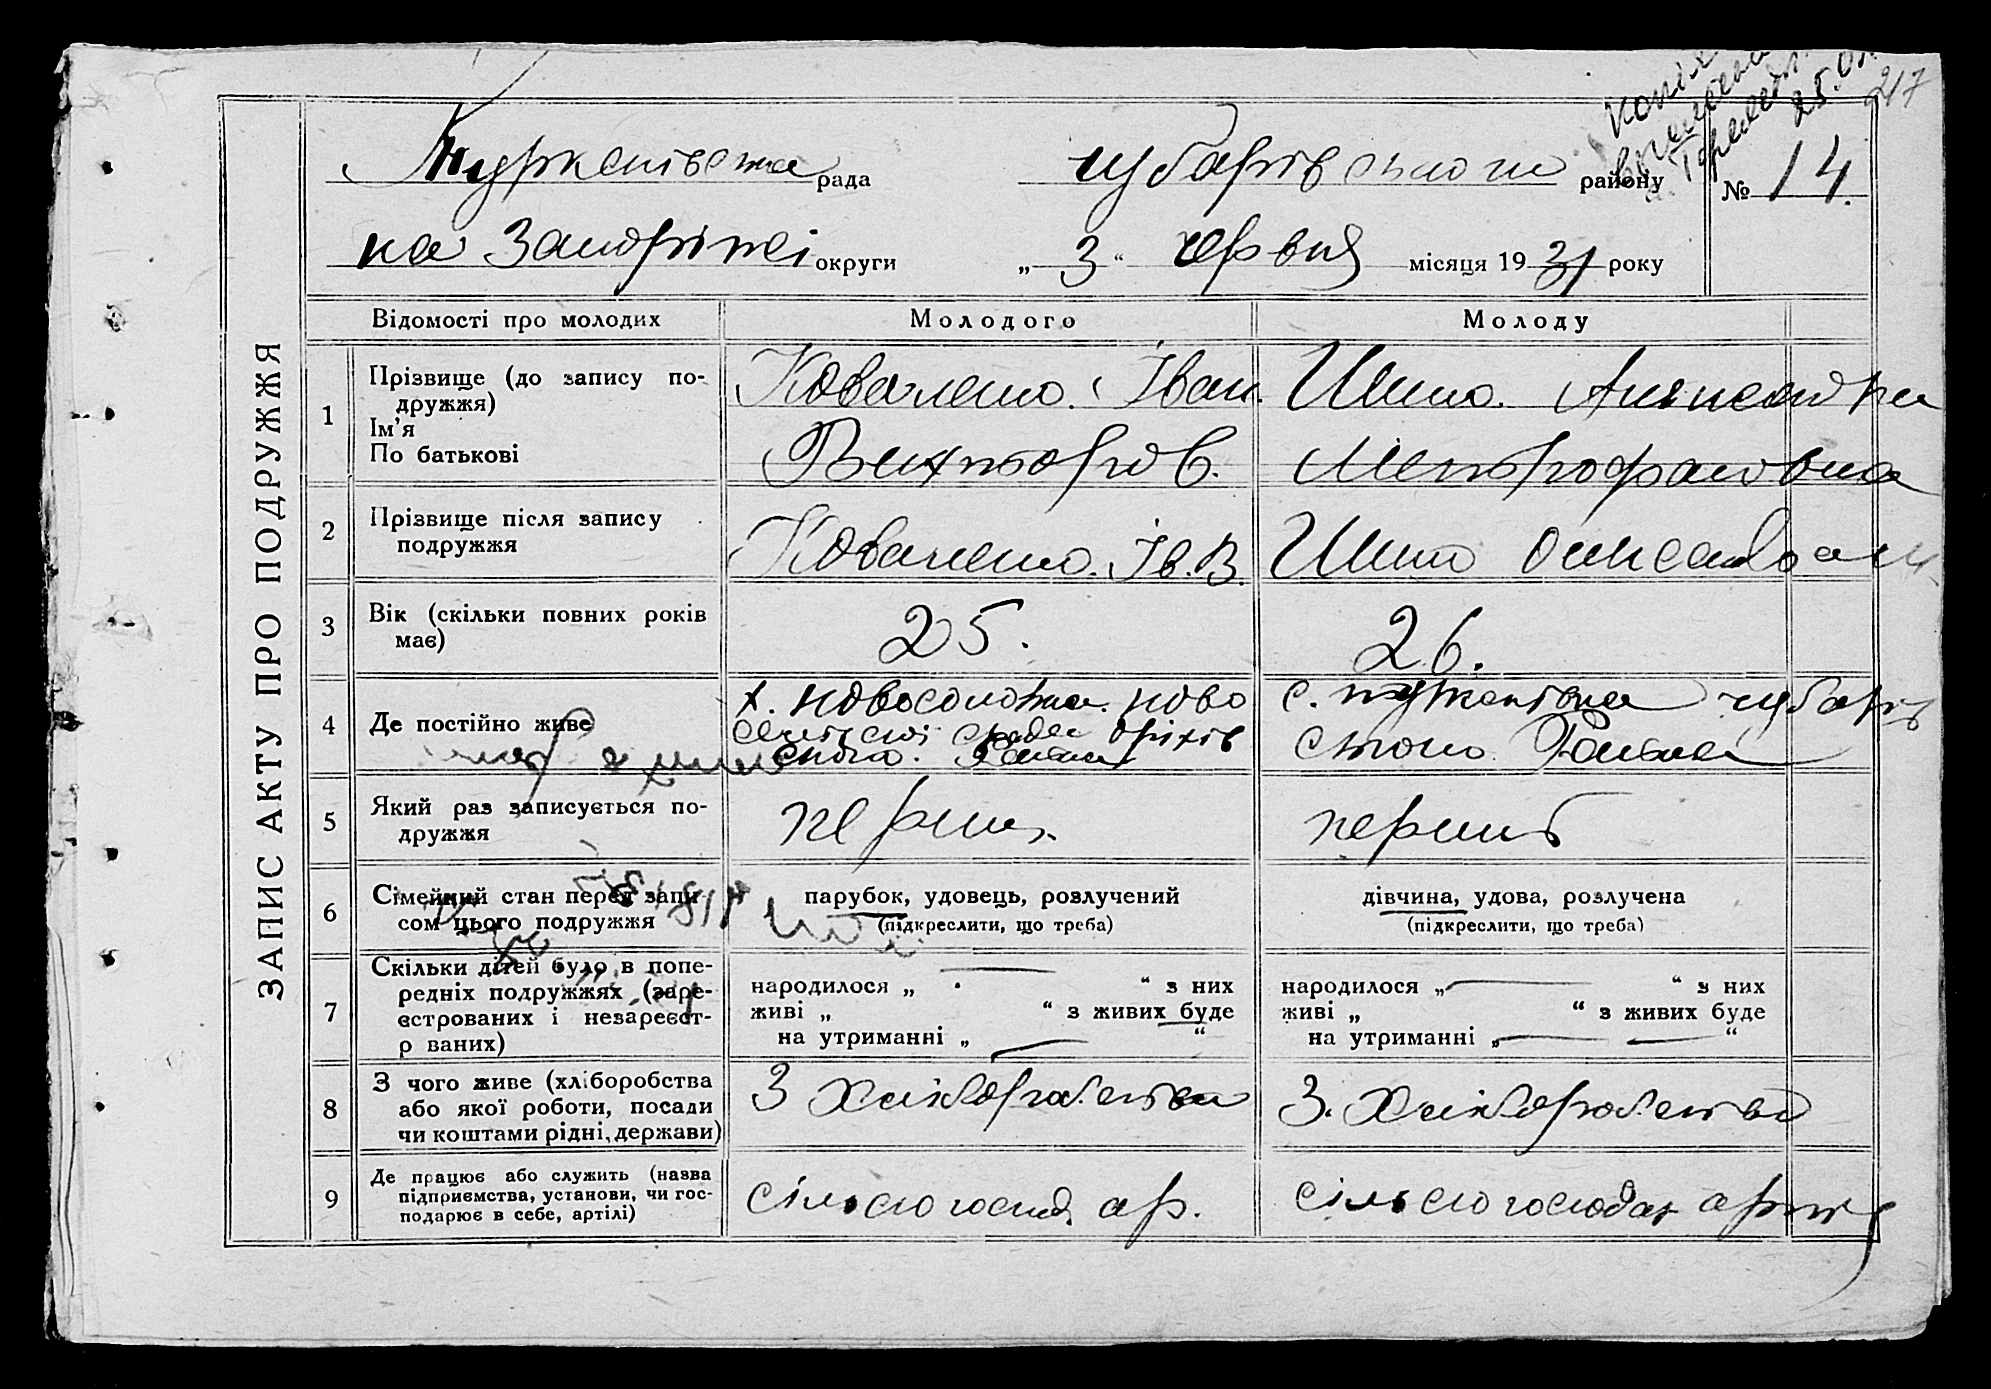 217
25.01.
Туркенівська рада чубарівського району № 14.
на Запоріжжі округи „ 3 “ червня місяця 1931 року
ЗАПИС АКТУ ПРО ПОДРУЖЖЯ
Відомості про молодих Молодого Молоду
1 Прізвище (до запису по-
дружжя)
Ім'я
По батькові
Коваленко. Іван.
Вихторов.
Шило. Александра
Метрофановна
2 Прізвище після запису
подружжя
Коваленко. Ів. В.
Шило
3 Вік (скільки повних років
має)
25.
26.
4 Де постійно живе
х. новосолошна. ново
оріхів
ського. Района
с. туркенівка чубарів
ського Района
5 Який раз записується по-
дружжя
перший
перший
6 Сімейний стан перед запи-
сом цього подружжя
парубок, удовець, розлучений
(підкреслити, що треба)
дівчина, удова, розлучена
(підкреслити, що треба)
7 Скільки дітей було в попе-
редніх подружжях (заре-
єстрованих і незареєст-
р ваних)
народилося „ “ з них
живі „ “ з живих буде
на утриманні „ “
народилося „ “ з них
живі „ “ з живих буде
на утриманні „ “
8 З чого живе (хліборобства
або якої роботи, посади
чи коштами рідні, держави)
З Хліборобства
З. Хліборобства
9 Де працює або служить (назва
підприємства, установи, чи гос-
подарює в себе, артілі)
сільсько господ. ар.
сільсько господар артіл